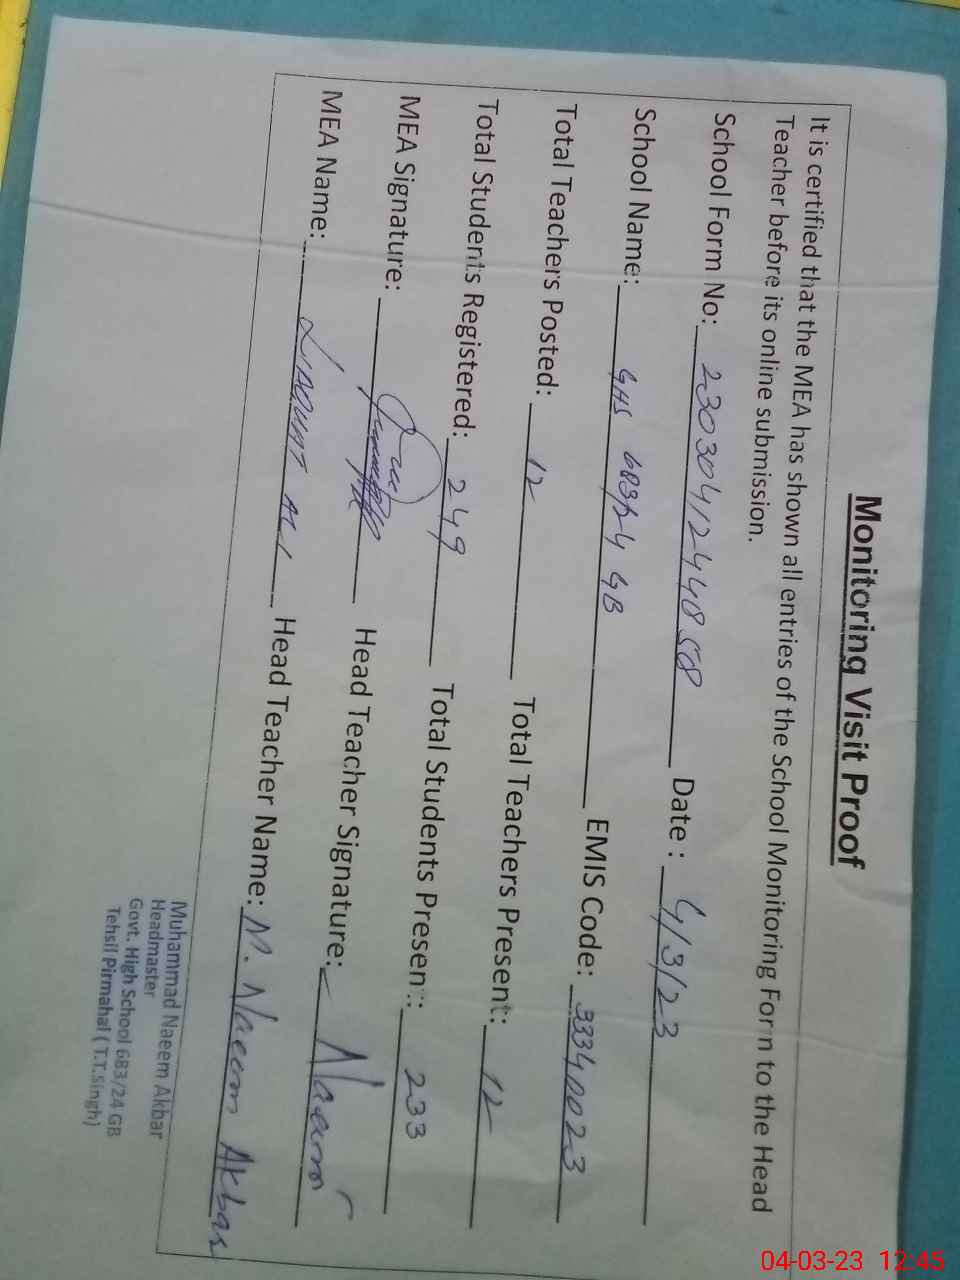 Monitoring Visit Proof
It is certified that the MEA has shown all entries of the School Monitoring Form to the Head
Teacher before its online submission.
School Form No: 2303041244858 Date : 4/3/23
School Name: GHS 683/24 GB EMIS Code: 33340023
Total Teachers Posted: 12 Total Teachers Present: 12
Total Students Registered: 249 Total Students Present: 233
MEA Signature: Head Teacher Signature: Naeem
MEA Name: LIAQUAT ALI Head Teacher Name: M. Naeem Akbar
Muhammad Naeem Akbar
Headmaster
Govt. High School 683/24 GB
Tehsil Pirmahal (T.T.Singh)
04-03-23 12:45